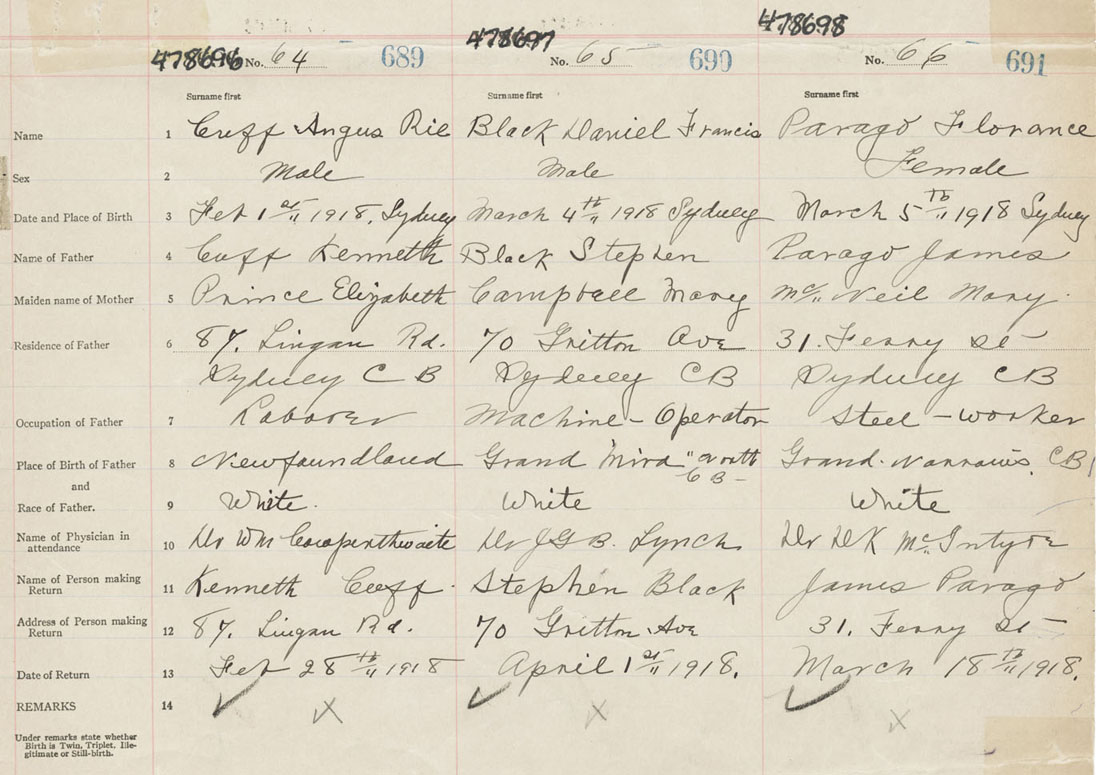 478696 No. 64 689 478697 No. 65 690 478698 No. 66 691
Surname first Surname first Surname first
Name 1 Cuff Angus Rie Black Daniel Francis Parago Florance
Sex 2 Male Male Female
Date and Place of Birth 3 Feb 1st 1918, Sydney March 4th 1918 Sydney March 5th 1918 Sydney
Name of Father 4 Cuff Kenneth Black Stephen Parago James
Maiden name of Mother 5 Prince Elizabeth Campbell Mary Mc Neil Mary
Residence of Father 6 87, Lingan Rd. 70 Gritton Ave 31. Ferry St
Sydney C B Sydney CB Sydney CB
Occupation of Father 7 Laborer Machine - Operator Steel - worker
Place of Birth of Father 8 Newfoundland Grand Mira North Grand. Narrows, CB
and CB
Race of Father. 9 White. White White
Name of Physician in attendance 10 Dr Wm Cowperthwaite Dr J G B. Lynch Dr D K Mc Intyre
Name of Person making Return 11 Kenneth Cuff. Stephen Black James Parago
Address of Person making Return 12 87, Lingan Rd. 70 Gritton Ave 31. Ferry St
Date of Return 13 Feb 28th 1918 April 1st 1918. March 18th 1918.
REMARKS 14
Under remarks state whether
Birth is Twin, Triplet, Ille-
gitimate or Still-birth.